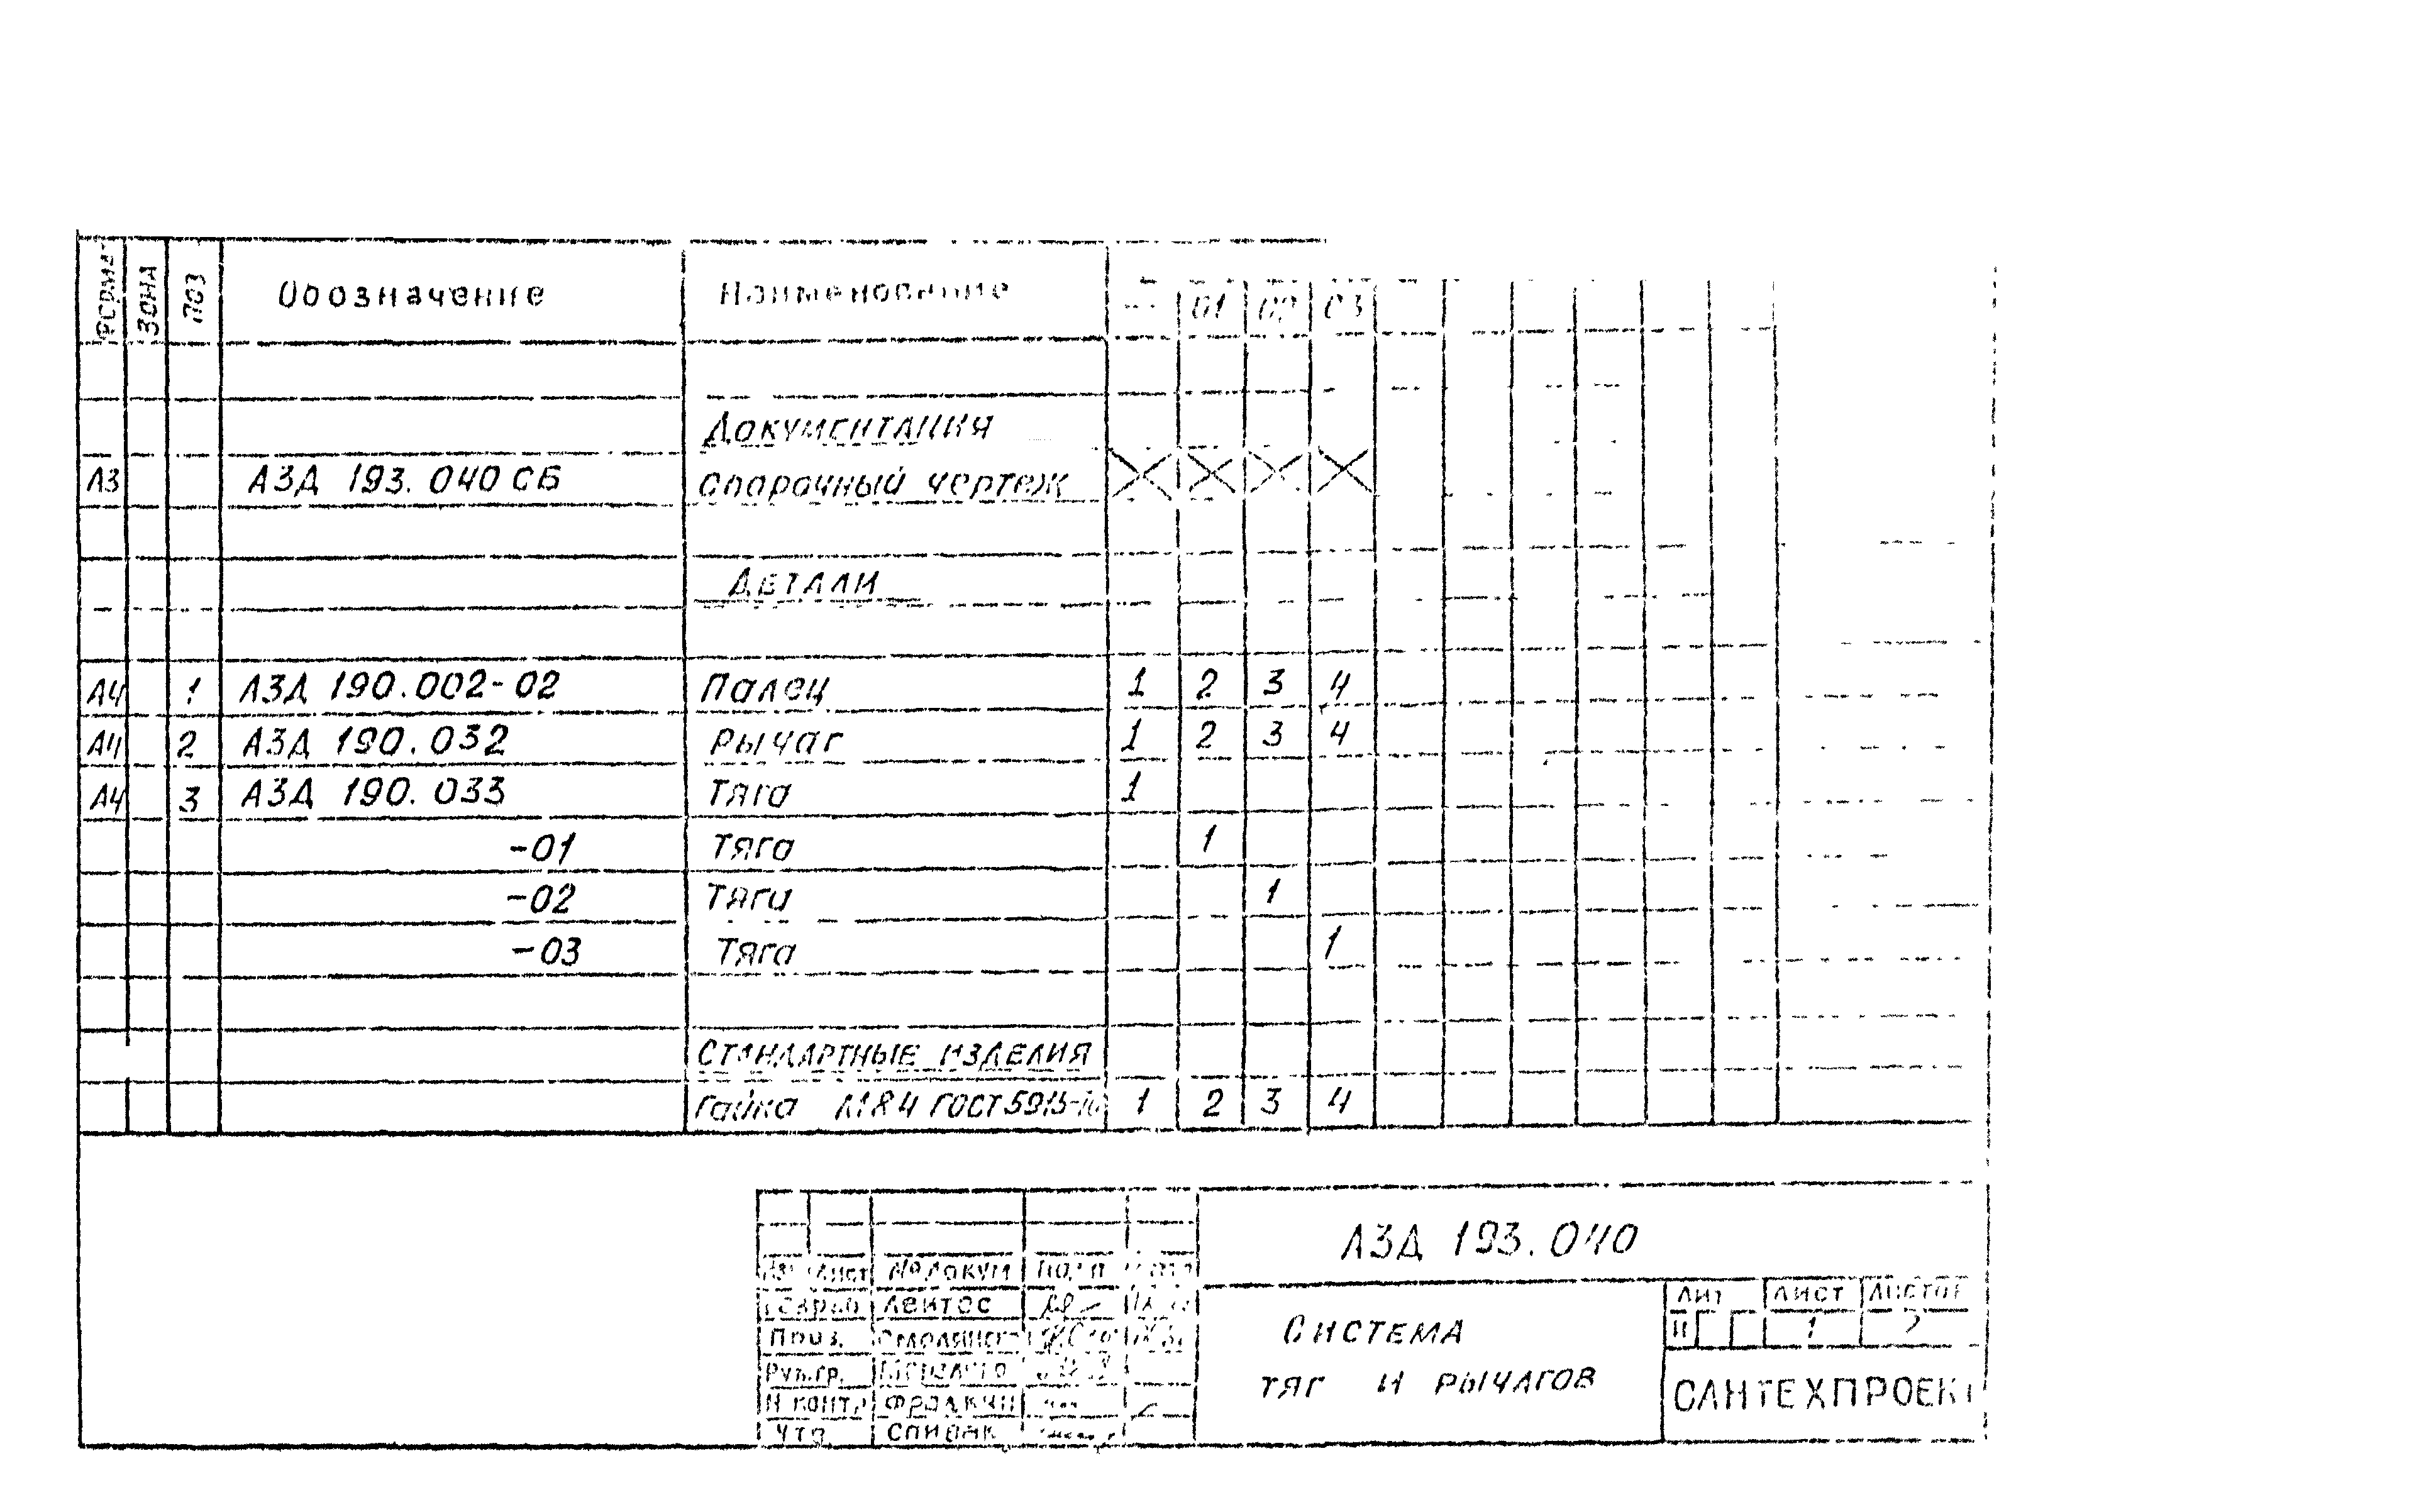 Формат Зона Поз Обозначение Наименование
01 02 03
Документация
А3 АЗД 193.040 СБ Сборочный чертеж
Детали
А4 1 АЗД 190.002-02 Палец 1 2 3 4
А4 2 АЗД 190.032 Рычаг 1 2 3 4
А4 3 АЗД 190.033 Тяга 1
-01 Тяга 1
-02 Тяга 1
-03 Тяга 1
Стандартные изделия
Гайка М8 4 ГОСТ 5915-70 1 2 3 4
АЗД 193.040
Лист № докум
Лейтес
Пров.
Рук.гр.
Н контр
Утв. Спивак
Система
тяг и рычагов
Лит Лист Листов
И 1 2
САНТЕХПРОЕКТ